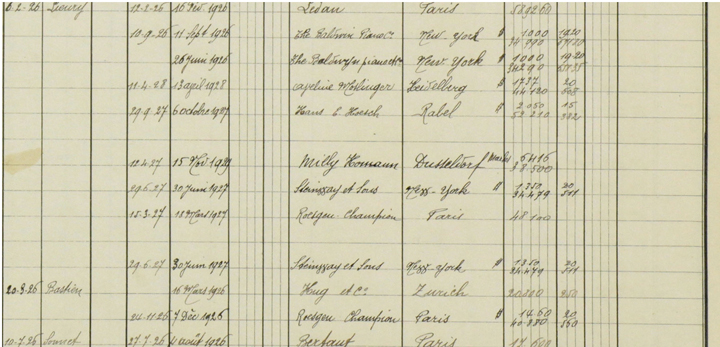 6-2-26 12-2-26 16 Fév. 1926 Ledan Paris
10-9-26 11 Sept 1926 The Baldwin Piano Co New-York $ 1000 1920
34.990
26 Juin 1926 The Baldwyn piano Co New York $ 1000 19.20
34290
11-4-28 13 april 1928 Heidelberg $ 1737 20
44120 508
29.9.27 6 octobre 1927 Hans C. Hoesch Rabel $ 2050 15
52210 382
12.4.27 15 Nov. 1929 Milly Homann Dusseldorf Marks 6416
38.500
29.6.27 30 Juin 1927 Steinway et Sons New-York $ 1350 20
34.479 511
15.3.27 18 Mars 1927 Roesgen-Champion Paris 48100
29.6.27 30 Juin 1927 Steinway et Sons New-York $ 1350 20
34.479 511
20.3.26 Bastien 16 Mars 1926 Hug et Co Zurich
24.11.26 7 Déc 1926 Roesgen Champion Paris $ 1460 20
40.880 560
10.7.26 Sonnet 27.7.26 4 août 1926 Bertaut Paris